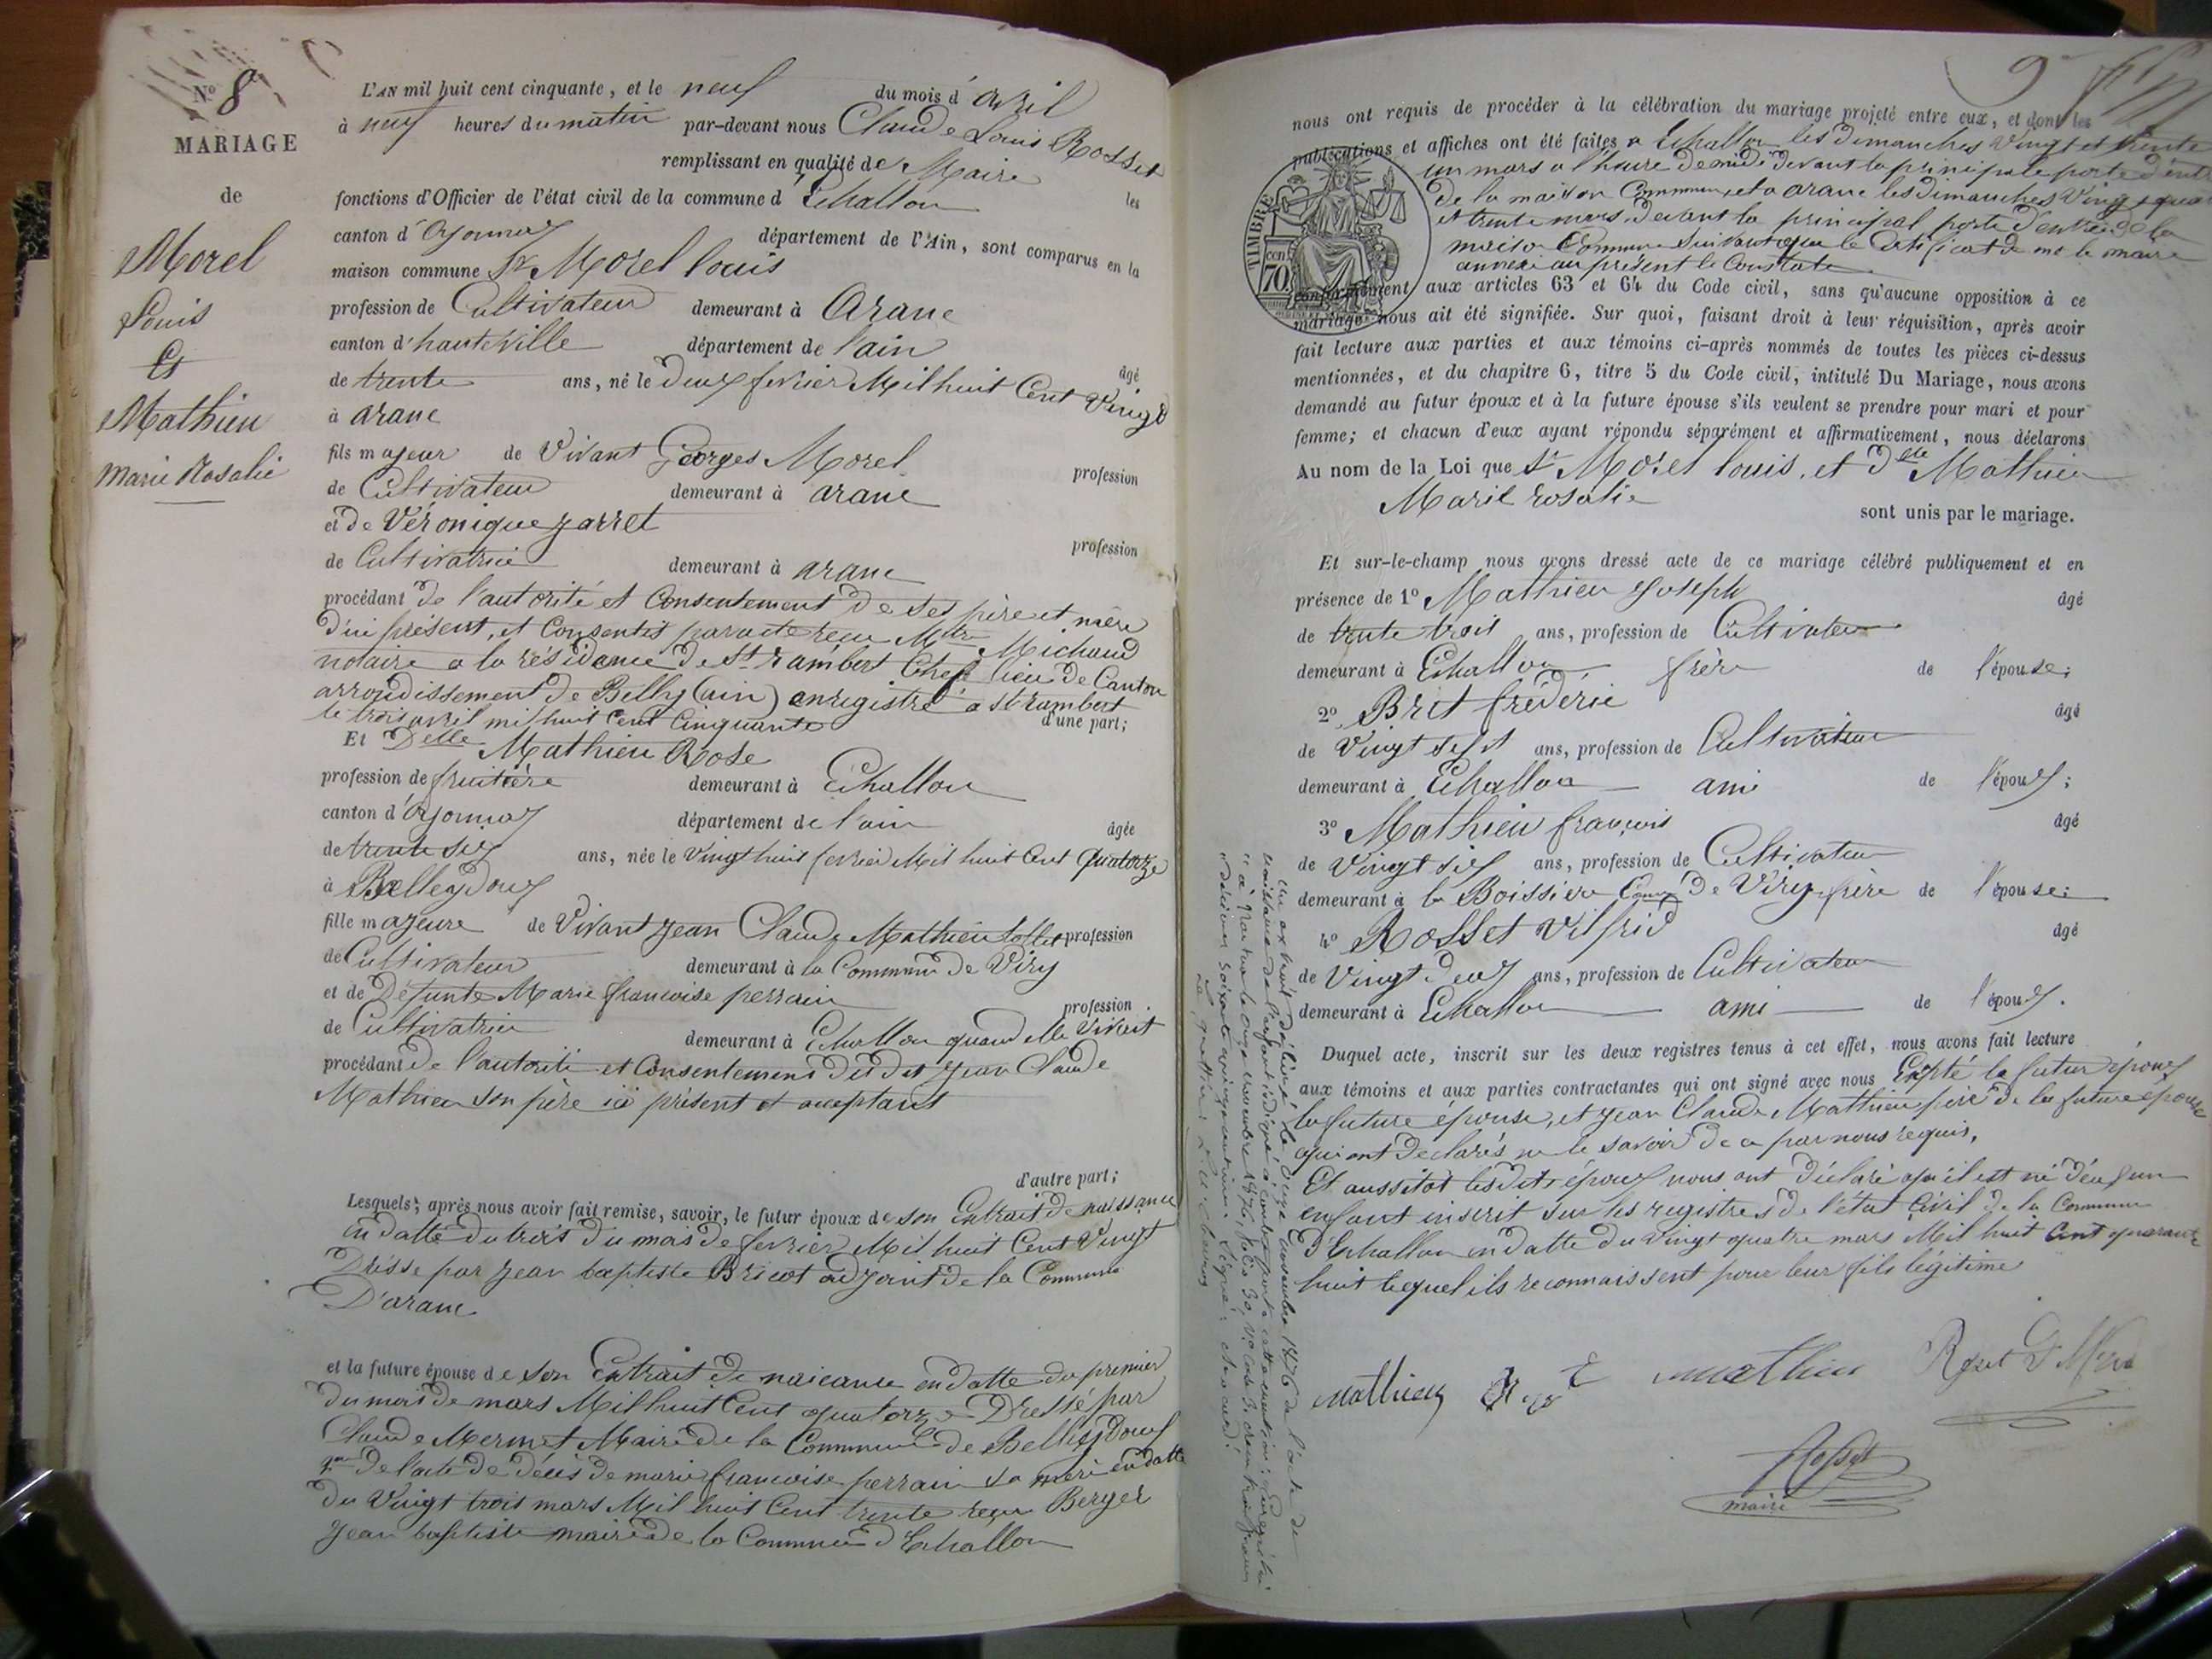 N° 8
MARIAGE
de
Morel
Louis
Et
Mathieu
Marie Rosalie
L'AN mil huit cent cinquante, et le neuf du mois d'avril
à neuf heures du matin par-devant nous Claude Louis Rosset
remplissant en qualité de Maire les
fonctions d'Officier de l'état civil de la commune d'Echallon
canton d'Oyonnax département de l'Ain, sont comparus en la
maison commune Sr Morel louis
profession de Cultivateur demeurant à Arane
canton d'hauteville département de l'ain âgé
de trente ans, né le deux fevrier Mil huit Cent Vingt
à arane
fils majeur de Vivant Georges Morel profession
de Cultivateur demeurant à arane
et de Véronique jarret profession
de Cultivatrice demeurant à arane
procédant de l'autorité et Consentement de ses père et mère
d'ici présent, et Consentis par acte reçu Mtre Michaud
notaire a la résidence de St rambert Chef lieu de Canton
arrondissement de Belley (ain) enregistré a St rambert
le trois avril mil huit Cent Cinquante d'une part;
Et Delle Mathieu Rose
profession de fruitière demeurant à Echallon
canton d'Oyonnax département de l'ain âgée
de trente six ans, née le Vingt huit fevrier Mil huit Cent Quatorze
à Belleydoux
fille majeure de Vivant Jean Claude Mathieu profession
de Cultivateur demeurant à la Commune de Viry
et de Défunte Marie francoise perrain profession
de Cultivatrice demeurant à Echallon quand elle Vivait
procédant de l'autorité et Consentement du dit Jean Claude
Mathieu son père ici présent et acceptant
d'autre part;
Lesquels, après nous avoir fait remise, savoir, le futur époux de son Extrait de naissance
en datte du trois du mois de fevrier Mil huit Cent Vingt
Dresse par Jean baptiste Bricot adjoint de la Commune
D'arane
et la future épouse de son Extrait de naicance en datte du premier
du mois de mars Mil huit Cent quatorze Dressé par
Claude Mermet Maire de la Commune de Belleydoux
de l'acte de décès de marie francoise perrain sa mère en datte
du Vingt trois mars Mil huit Cent trente reçu Berger
Jean baptiste maire de la Commune d'Echallon
9
nous ont requis de procéder à la célébration du mariage projeté entre eux, et dont les
publications et affiches ont été faites a Echallon les dimanches Vingt et trente
un mars a l'heure de midi devant la principale porte d'entré
de la maison Commune, et a arane les dimanches Vingt quatre
et trente mars devant la principal porte d'entrée de la
maison Commune Suivant que le Certificat de mr le maire
annexé au présent le Constate
TIMBRE
70 cen
conformément aux articles 63 et 64 du Code civil, sans qu'aucune opposition à ce
mariage nous ait été signifiée. Sur quoi, faisant droit à leur réquisition, après avoir
fait lecture aux parties et aux témoins ci-après nommés de toutes les pièces ci-dessus
mentionnées, et du chapitre 6, titre 5 du Code civil, intitulé Du Mariage, nous avons
demandé au futur époux et à la future épouse s'ils veulent se prendre pour mari et pour
femme; et chacun d'eux ayant répondu séparément et affirmativement, nous déclarons
Au nom de la Loi que Sr Morel louis, et Delle Mathieu
Marie rosalie sont unis par le mariage.
Et sur-le-champ nous avons dressé acte de ce mariage célébré publiquement et en
présence de 1° Mathieu Joseph âgé
de trente trois ans, profession de Cultivateur
demeurant à Echallon frère de l'épouse;
2° Brit fréderic âgé
de Vingt sept ans, profession de Cultivateur
demeurant à Echallon ami de l'époux;
3° Mathieu françois âgé
de Vingt six ans, profession de Cultivateur
demeurant à la Boissiere Comne de Viry frère de l'épouse;
4° Rosset Vilfrid âgé
de Vingt deux ans, profession de Cultivateur
demeurant à Echallon ami de l'époux.
Duquel acte, inscrit sur les deux registres tenus à cet effet, nous avons fait lecture
aux témoins et aux parties contractantes qui ont signé avec nous Expté le futur époux
la future épouse, et Jean Claude Mathieu père de la future épouse
qui ont declarés ne le savoir de ce par nous requis,
Et aussitot les dits époux nous ont déclaré qu'il est né d'eux un
enfant inscrit sur les registres de l'état Civil de la Commune
d'Echallon en datte du Vingt quatre mars Mil huit Cent quarante
huit lequel ils reconnaissent pour leur fils légitime
Mathieu mathieu
Rosset
maire